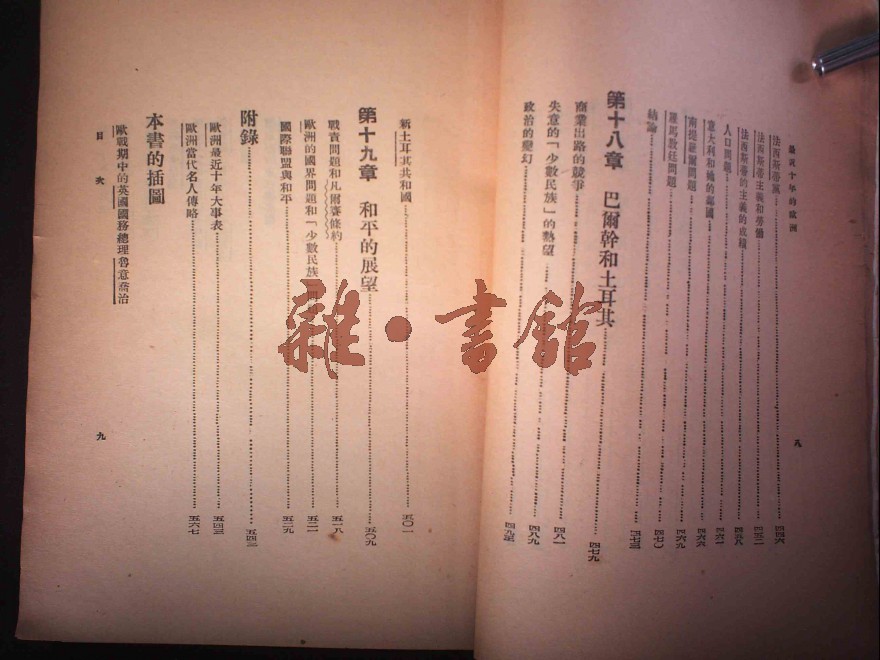 最近十年的歐洲
八
法西斯蒂黨 四四六
法西斯蒂主義和勞働 四五二
法西斯蒂的主義的成績 四五八
人口問題 四六一
意大利和她的鄰國 四六六
南提羅爾問題 四六九
羅馬教廷問題 四七〇
結論 四七三
第十八章 巴爾幹和土耳其 四七九
商業出路的競爭 四八一
失意的「少數民族」的熱望 四八九
政治的變幻
新土耳其共和國 五〇一
第十九章 和平的展望 五〇九
戰責問題和凡爾賽條約 五一八
歐洲的國界問題和「少數民族 五二一
國際聯盟與和平 五二九
附錄 五四三
歐洲最近十年大事表 五四三
歐洲當代名人傳略 五六七
本書的插圖
歐戰期中的英國國務總理魯意喬治
目次
九
雜·書館